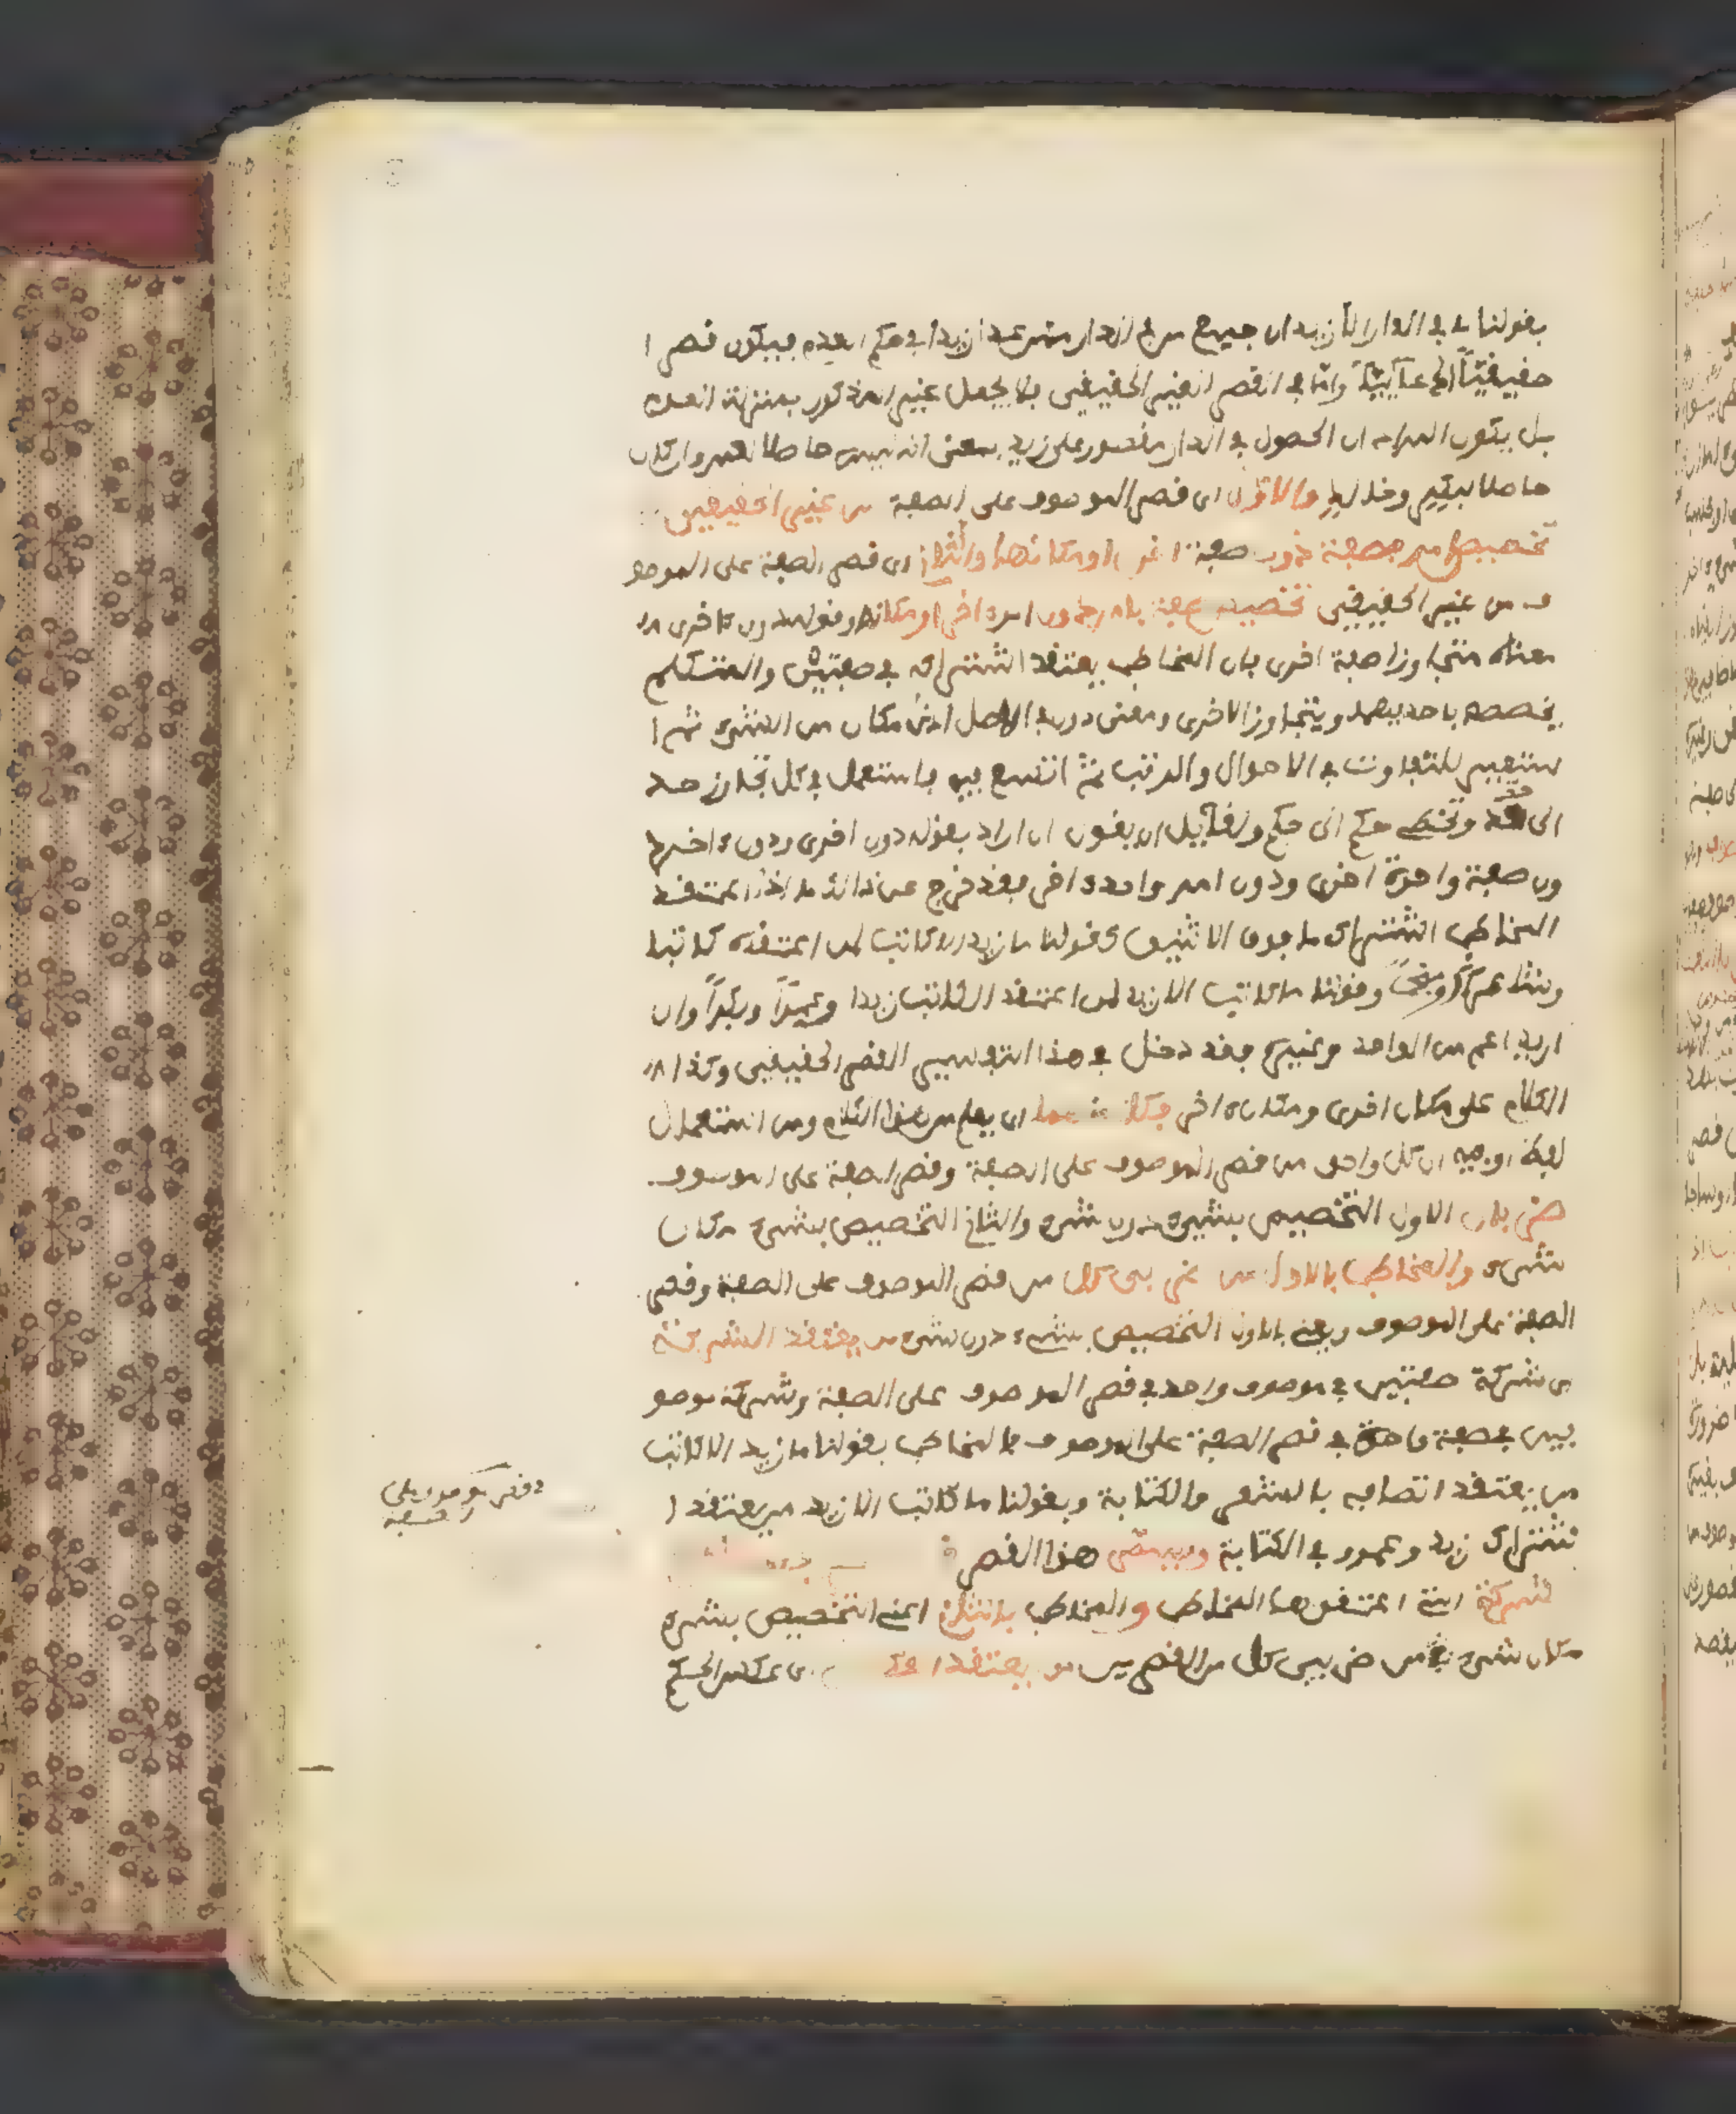 بقولنا ما في الدار الا زيد ان جميع من في الدار ممن عدا زيدا في حكم العدم فيكون قصرا
حقيقيا ادعائيا واما في القصر الغير الحقيقي فلا يجعل غير المذكور بمنزلة العدم
بل يكون المراد ان الحصول في الدار مقصور على زيد بمعنى انه ليس حاصلا لعمرو وان كان
حاصلا لبكر وخالد والاول اي قصر الموصوف على الصفة من غير الحقيقي
تخصيص امر بصفة دون صفة اخرى او مكانها والثاني اي قصر الصفة على الموصو
ف من غير الحقيقي تخصيص صفة بامر دون امر اخر او مكانه وقوله دون اخرى
معناه متجاوزا صفة اخرى فان المخاطب يعتقد اشتراكه في صفتين والمتكلم
يخصصه باحديهما ويتجاوز الاخرى ومعنى دون في الاصل ادنى مكان من الشيء ثم ا
ستعير للتفاوت في الاحوال والرتب ثم اتسع فيه فاستعمل في كل تجاوز حد
الى حد وتخطي حكم الى حكم ولقائل ان يقول ان اراد بقوله دون اخرى ودون اخر د
ون صفة واحدة اخرى ودون امر واحد اخر فقد خرج عن ذلك ما اذا اعتقد
المخاطب اشتراك ما فوق الاثنين كقولنا ما زيد الا كاتب لمن اعتقده كاتبا
وشاعرا ومنجما وقولنا ما كاتب الا زيد لمن اعتقد الكاتب زيدا وعمرا وبكرا وان
اريد اعم من الواحد وغيره فقد دخل في هذا التفسير القصر الحقيقي وكذا
الكلام على مكان اخرى ومكان اخر فكل منهما اي يعلم من هذا الكلام ومن استعمال
لفظة او فيه ان كل واحد من قصر الموصوف على الصفة وقصر الصفة على الموصوف
ضربان الاول التخصيص بشيء دون شيء والثاني التخصيص بشيء مكان
شيء والمخاطب بالاول من ضربي كل من قصر الموصوف على الصفة وقصر
الصفة على الموصوف ويعني بالاول التخصيص بشيء دون شيء من يعتقد الشركة
اي شركة صفتين في موصوف واحد في قصر الموصوف على الصفة وشركة موصو
فين في صفة واحدة في قصر الصفة على الموصوف فالمخاطب بقولنا ما زيد الا كاتب
من يعتقد اتصافه بالشعر والكتابة وبقولنا ما كاتب الا زيد من يعتقد ا
شتراك زيد وعمرو في الكتابة ويسمى هذا القصر
لشركة التي اعتقدها المخاطب والمخاطب بالثاني اعني التخصيص بشيء
مكان شيء من ضربي كل من القصرين من يعتقد العكس اي عكس الحكم